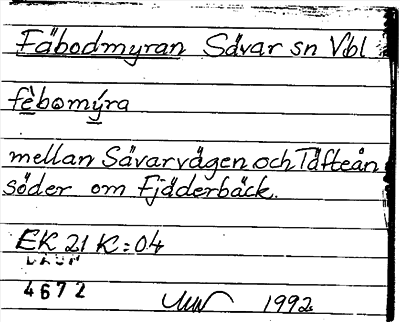 Fäbodmyran Sävar sn Vbl
fèbomýra
mellan Sävarvägen och Täfteån
söder om Fjäderbäck.
EK 21 K:04
DAUM
4672
1992